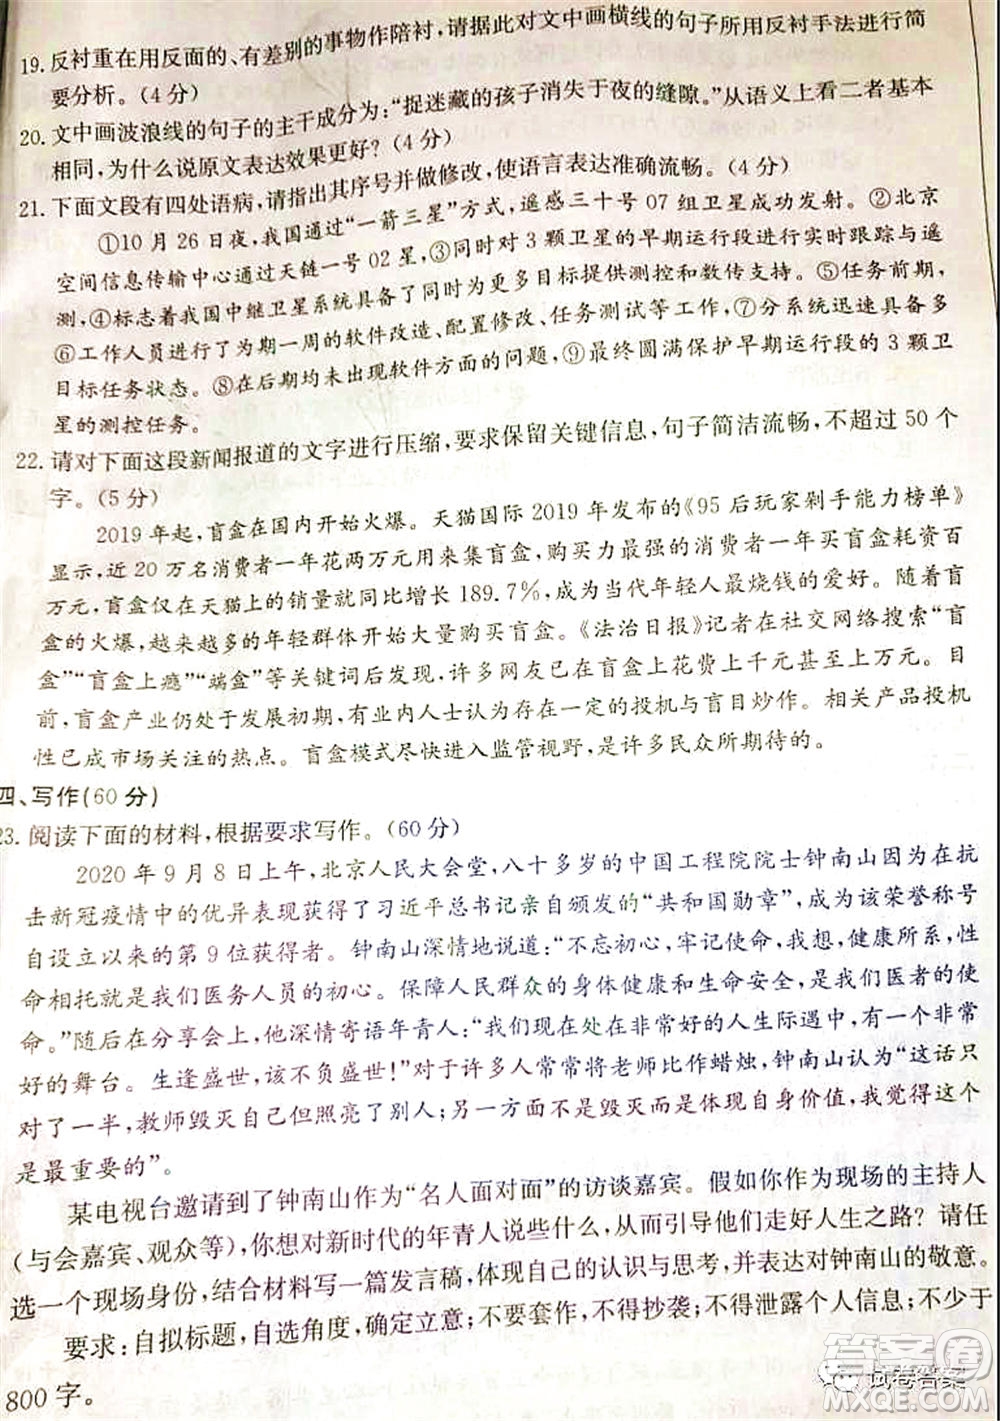 19. 反衬重在用反面的、有差别的事物作陪衬,请据此对文中画横线的句子所用反衬手法进行简
要分析。(4分)
20. 文中画波浪线的句子的主干成分为:“捉迷藏的孩子消失于夜的缝隙。”从语义上看二者基本
相同,为什么说原文表达效果更好?(4分)
21. 下面文段有四处语病,请指出其序号并做修改,使语言表达准确流畅。(4分)
①10月26日夜,我国通过“一箭三星”方式,遥感三十号07组卫星成功发射。②北京
空间信息传输中心通过天链一号02星,③同时对3颗卫星的早期运行段进行实时跟踪与遥
测,④标志着我国中继卫星系统具备了同时对多目标提供测控和数传支持。⑤任务前期,
⑥工作人员进行了为期一周的软件改造、配置修改、任务测试等工作,⑦分系统迅速具备多
目标任务状态。⑧在后期均未出现软件方面的问题,⑨最终圆满保护早期运行段的3颗卫
星的测控任务。
22. 请对下面这段新闻报道的文字进行压缩,要求保留关键信息,句子简洁流畅,不超过50个
字。(5分)
2019年起,盲盒在国内开始火爆。天猫国际2019年发布的《95后玩家剁手能力榜单》
显示,近20万名消费者一年花两万元用来集盲盒,购买力最强的消费者一年买盲盒耗资百
万元,盲盒仅在天猫上的销量就同比增长189.7%,成为当代年轻人最烧钱的爱好。随着盲
盒的火爆,越来越多的年轻群体开始大量购买盲盒。《法治日报》记者在社交网络搜索“盲
盒”“盲盒上瘾”“端盒”等关键词后发现,许多网友在盲盒上花费上千元甚至上万元。目
前,盲盒产业仍处于发展初期,有业内人士认为存在一定的投机与盲目炒作。相关产品投机
性已成市场关注的热点。盲盒模式尽快进入监管视野,是许多民众所期待的。
四、写作(60分)
23. 阅读下面的材料,根据要求写作。(60分)
2020年9月8日上午,北京人民大会堂,八十多岁的中国工程院院士钟南山因为在抗
击新冠疫情中的优异表现获得了习近平总书记亲自颁发的“共和国勋章”,成为该荣誉称号
自设立以来的第9位获得者。钟南山深情地说道:“不忘初心,牢记使命,我想,健康所系,性
命相托就是我们医务人员的初心。保障人民群众的身体健康和生命安全,是我们医者的使
命。”随后在分享会上,他深情寄语年青人:“我们现在处在非常好的人生际遇中,有一个非常
好的舞台。生逢盛世,该不负盛世!”对于许多人常常将老师比作蜡烛,钟南山认为“这话只
对了一半,教师毁灭自己但照亮了别人;另一方面不是毁灭而是实现自身价值,我觉得这才
是最重要的”。
某电视台邀请到了钟南山作为“名人面对面”的访谈嘉宾。假如你作为现场的主持人
(与会嘉宾、观众等),你想对新时代的年青人说些什么,从而引导他们走好人生之路?请任
选一个现场身份,结合材料写一篇发言稿,体现自己的认识与思考,并表达对钟南山的敬意。
要求:自拟标题,自选角度,确定立意;不要套作,不得抄袭;不得泄露个人信息;不少于
800字。
试卷答案
答案圈
MXQE.COM